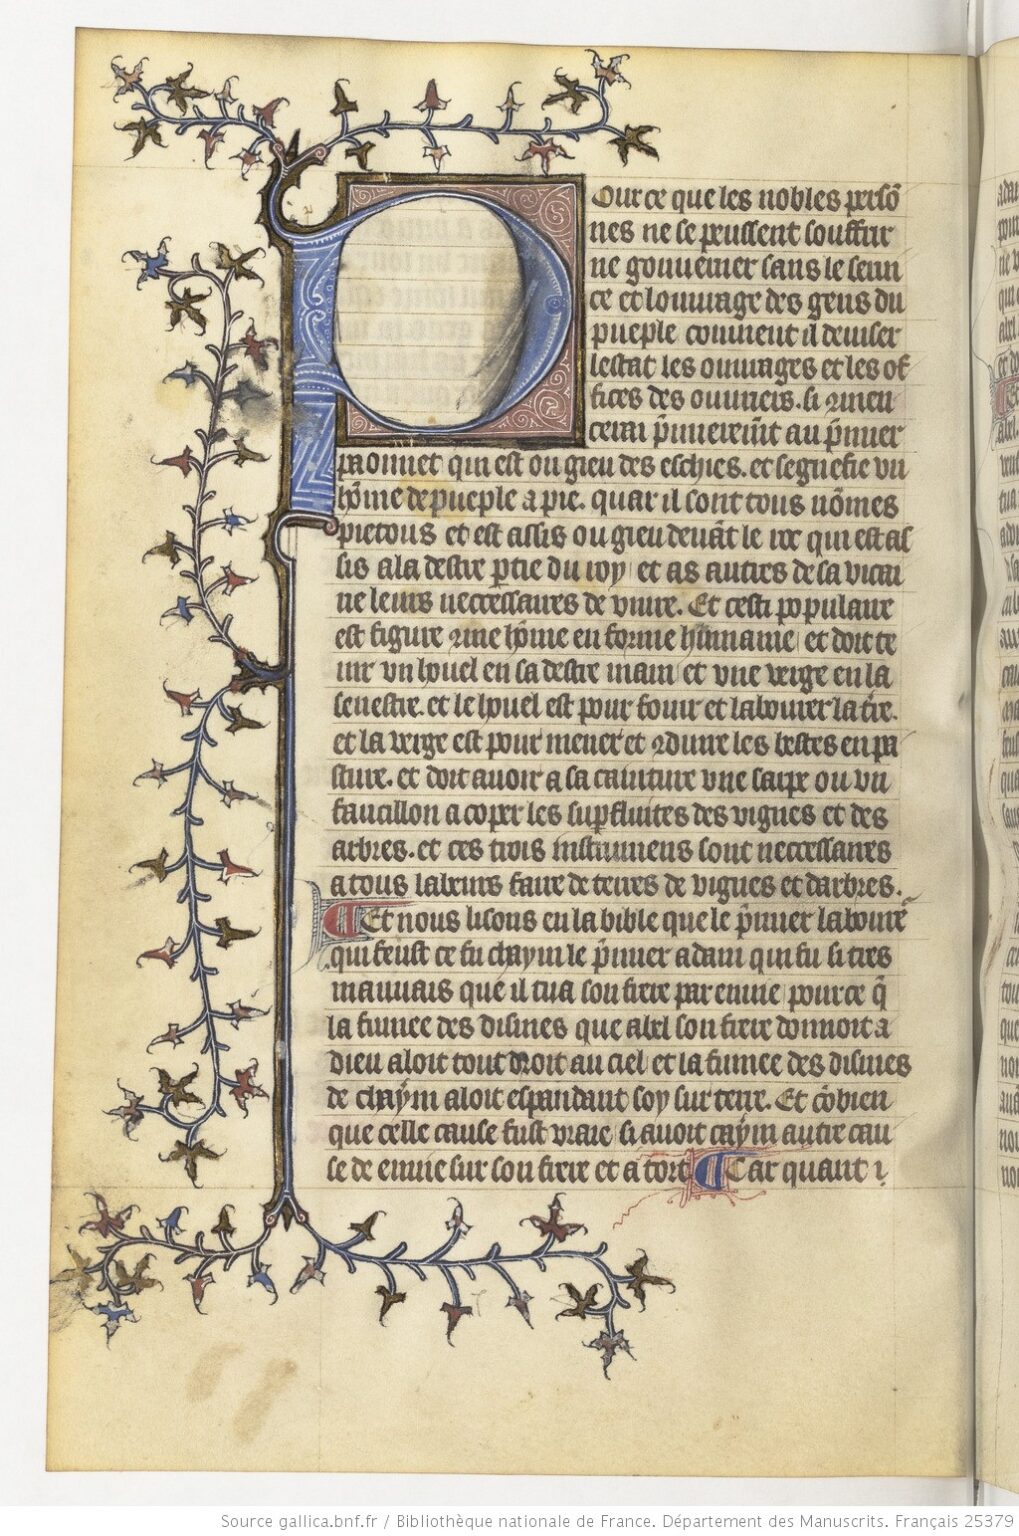 Pource que les nobles persõ
nes ne se peussent souffrir
ne gouverner sans le servi
ce et louvrage des gens du
pueple couvient il deviser
lestat les ouvrages et les of
fices des ouvriers. si
au p̃mier
paonnet qui est ou gieu des eschies. et segnefie un
hõme de pueple a pie. quar il sont tous nõmes
pietons et est assis ou gieu devãt le roc qui est as
sis a la destre ꝑtie du roy et as autres de sa
ne leurs neccessaires de vivre. Et cesti populaire
est figure ꝯme hõme en forme humaine et doit te
nir un houel en sa destre main et une verge en la
senestre. et le houel est pour fouir et labourer la tr̃e.
et la verge est pour mener et ꝯduire les bestes en pa
sture. et doit avoir a sa cainture une sarpe ou un
faucillon a coper les supfluites des vignes et des
arbres. et ces trois instrumens sont neccessaires
a tous labeurs faire de terres de vignes et darbres.
Et nous lisons en la bible que le p̃mier laboure
qui feust ce fu chaym le p̃mier adam qui fu si tres
mauvais que il tua son frere par envie pource q̃
la fumee des disines que abel son frere donnoit a
dieu aloit tout droit au ciel et la fumee des disines
de chaym aloit espandant soy sur terre. Et cõbien
que celle cause fust vraie si avoit caym autre cau
se de envie sur son frere et a tort Car quant i
Source gallica.bnf.fr / Bibliothèque nationale de France. Département des Manuscrits. Français 25379